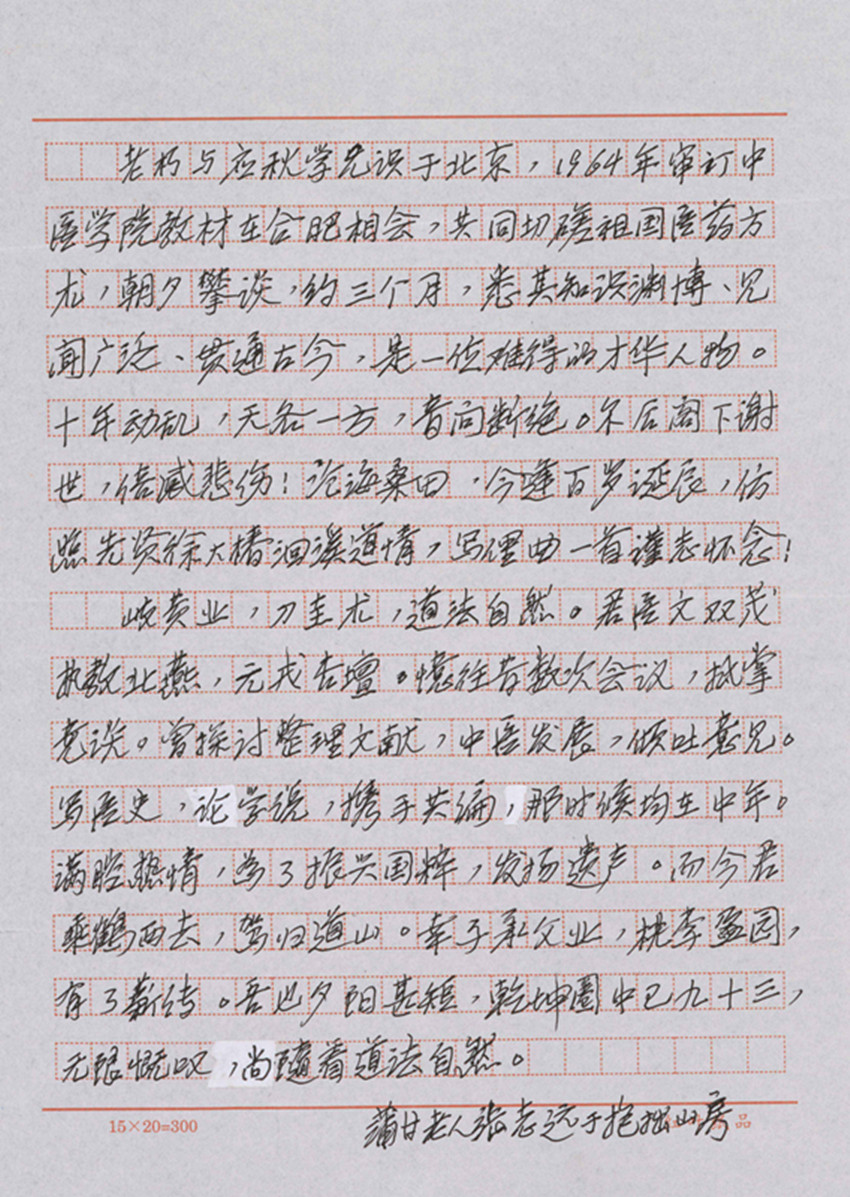 老朽与应秋学兄识于北京，1964年审订中
医学院教材在合肥相会，共同切磋祖国医药方
术，朝夕攀谈，约三个月，悉其知识渊博、见
闻广泛、贯通古今，是一位难得的才华人物。
十年动乱，天各一方，音问断绝。尔后阁下谢
世，倍感悲伤！沧海桑田，今逢百岁诞辰，仿
照先贤徐大椿洄溪道情，写俚曲一首谨志怀念！
岐黄业，刀圭术，道法自然。君医文双茂
执教北燕，元戎杏坛。忆往昔数次会议，抵掌
竞谈。曾探讨整理文献，中医发展，倾吐意见。
写医史，论学说，携手共编，那时候均在中年。
满腔热情，为了振兴国粹，发扬遗声。而今君
乘鹤西去，驾归道山。幸子承父业，桃李盈园，
有了薪传。吾也夕阳甚短，乾坤圈中已九十三，
无限慨叹，尚随看道法自然。
15×20=300
品
蒲甘老人张志远于抱拙山房